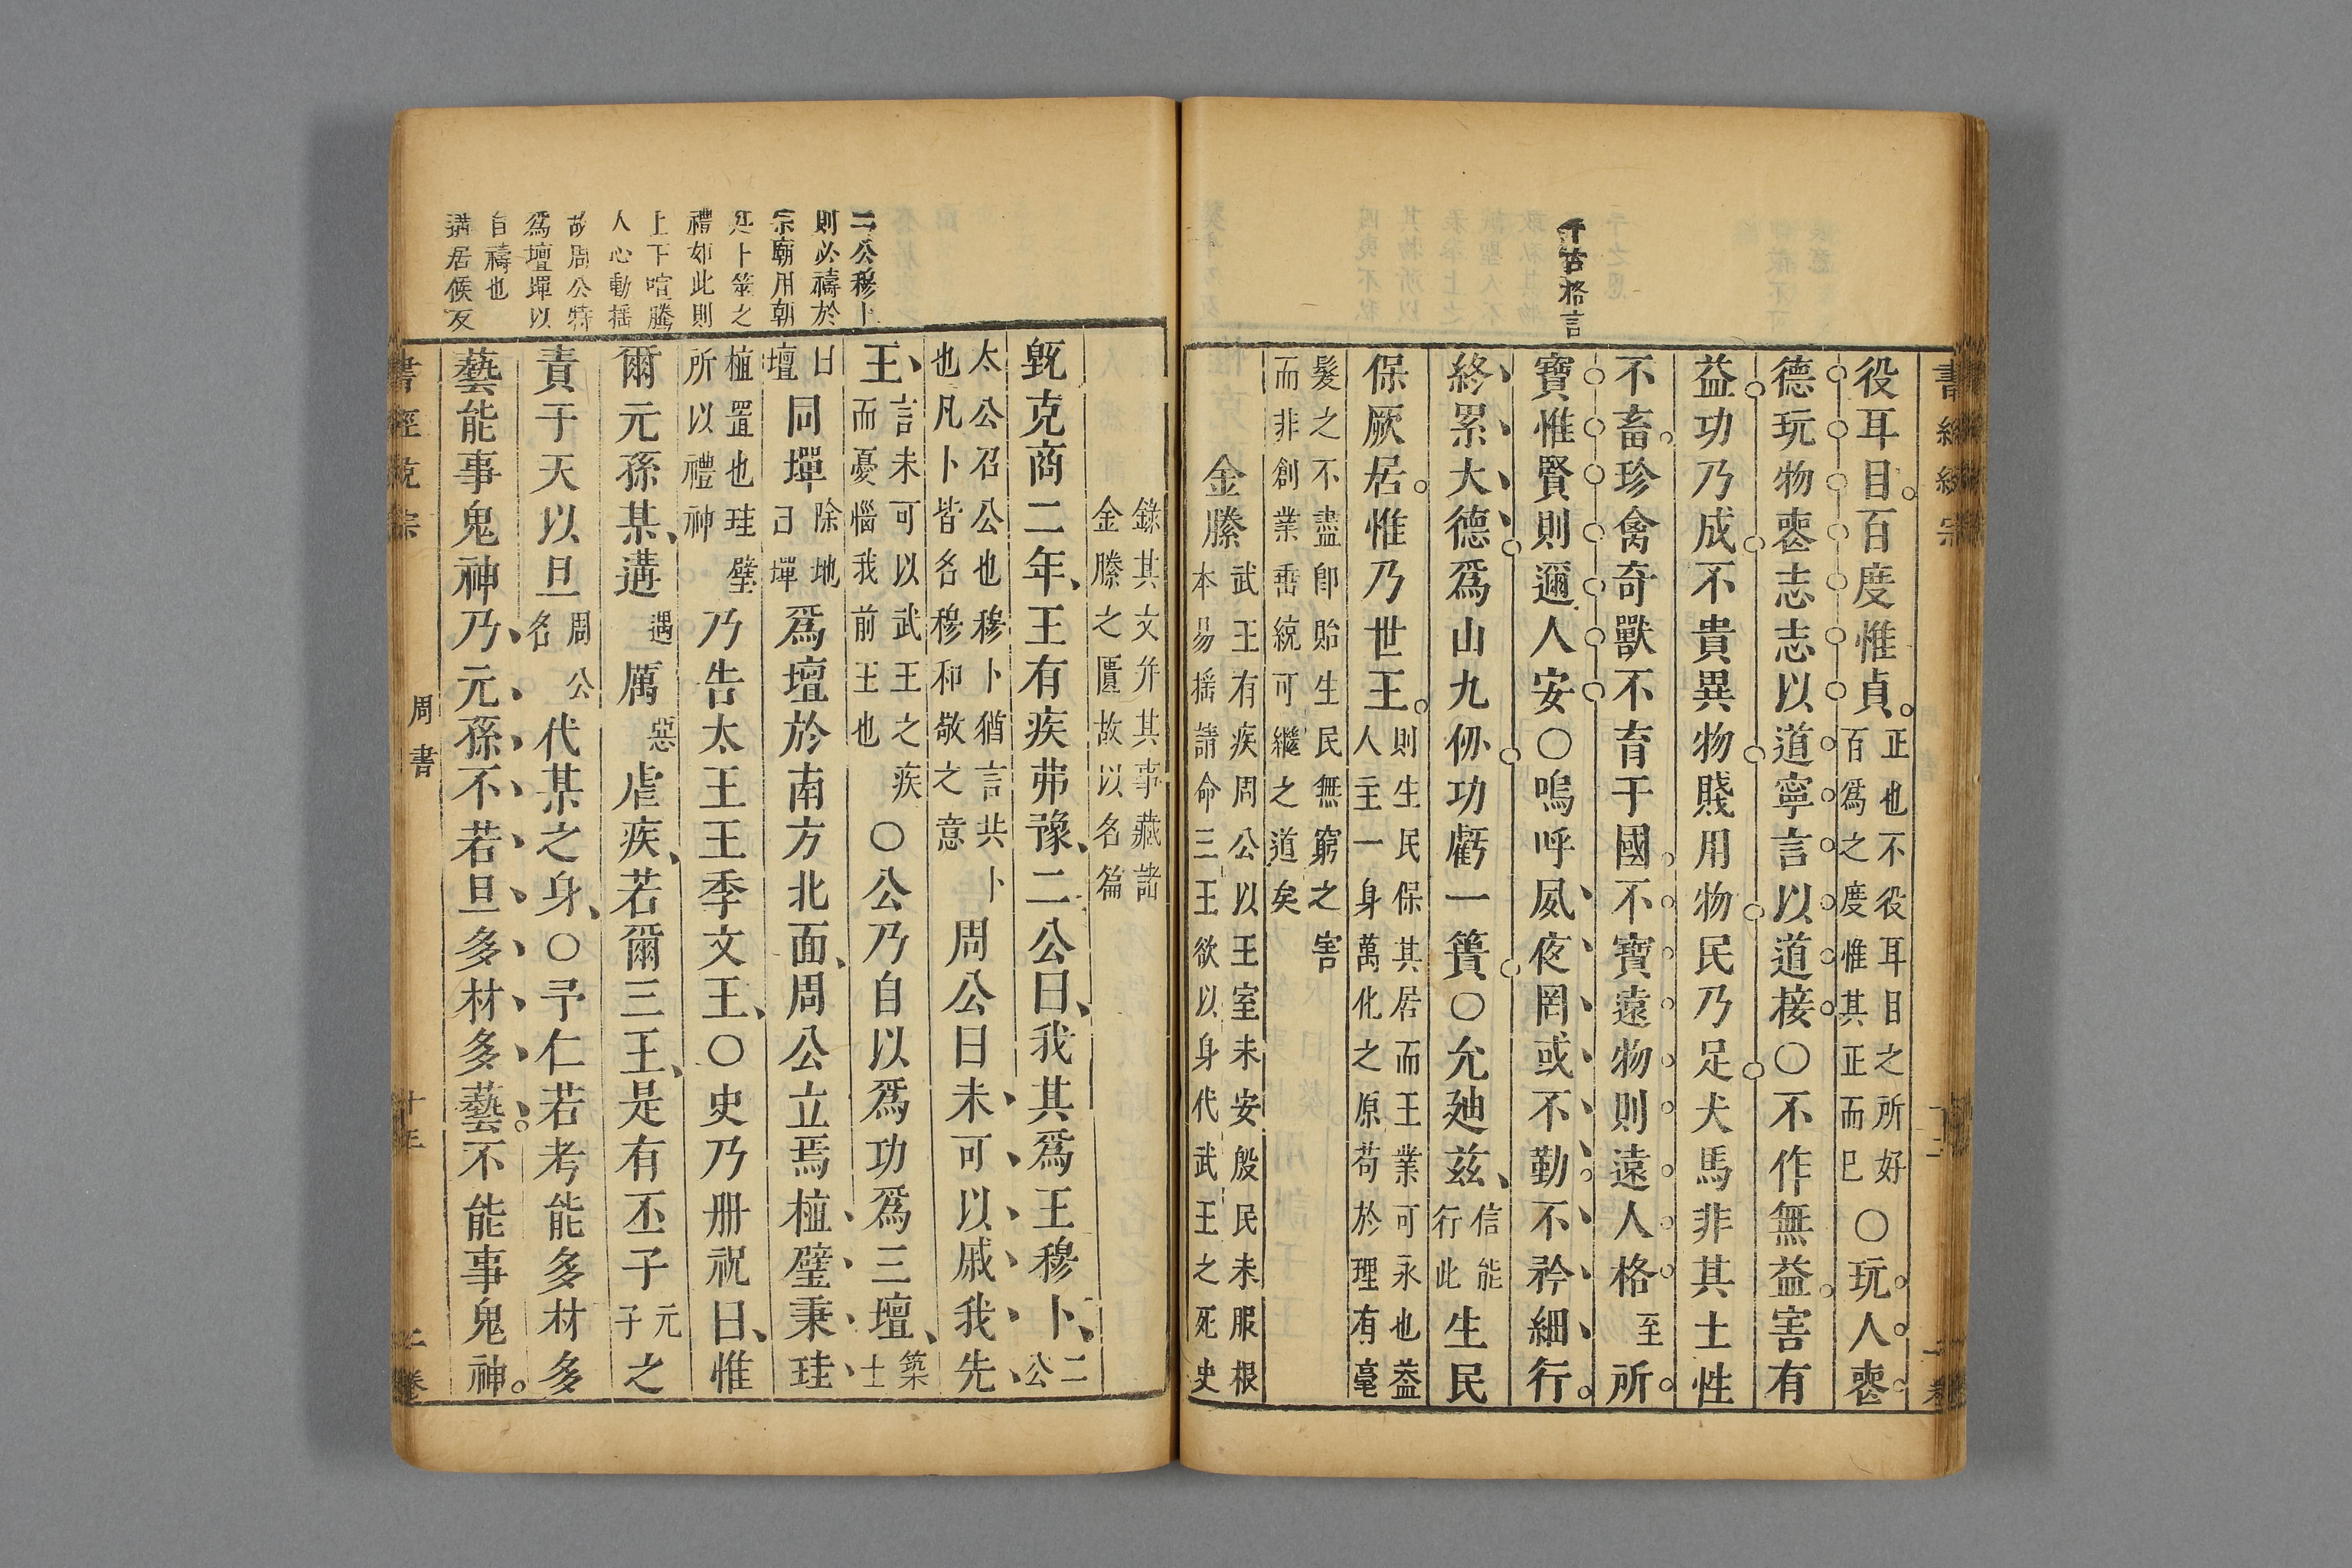 千古格言
役耳目百度惟貞正也不役耳目之所好百為之度惟其正而已○玩人喪
德玩物喪志志以道寧言以道接○不作無益害有
益功乃成不貴異物賤用物民乃足犬馬非其土性
不畜珍禽奇獸不育于國不寶遠物則遠人格至所
寶惟賢則邇人安○嗚呼夙夜罔或不勤不矜細行
終累大德爲山九仞功虧一簣○允廸兹信能行此生民
保厥居惟乃世王則生民保其居而王業可永也益人主一身萬化之原苟於理有毫
髮之不盡卽貽生民無窮之害而非創業垂統可繼之道矣
金縢武王有疾周公以王室未安殷民未服根本易揺請命三王欲以身代武王之死史
錄其文幷其事藏諸金縢之匱故以名篇
二公穆卜
則必禱於
宗廟用朝
廷卜筮之
禮如此則
上下喧騰
人心動揺
故周公特
爲壇墠以
自禱也
遘居候反
旣克商二年王有疾弗豫二公曰我其爲王穆卜二公
太公召公也穆卜猶言共卜也凡卜皆名穆和敬之意周公曰未可以戚我先
王言未可以武王之疾而憂惱我前王也○公乃自以爲功爲三壇築土
曰壇同墠除地曰墠爲壇於南方北面周公立焉植璧秉珪
植置也珪璧所以禮神乃告太王王季文王○史乃册祝曰惟
爾元孫某遘遇厲惡虐疾若爾三王是有丕子元子之
責于天以旦周公名代某之身○予仁若考能多材多
藝能事鬼神乃元孫不若旦多材多藝不能事鬼神
周書